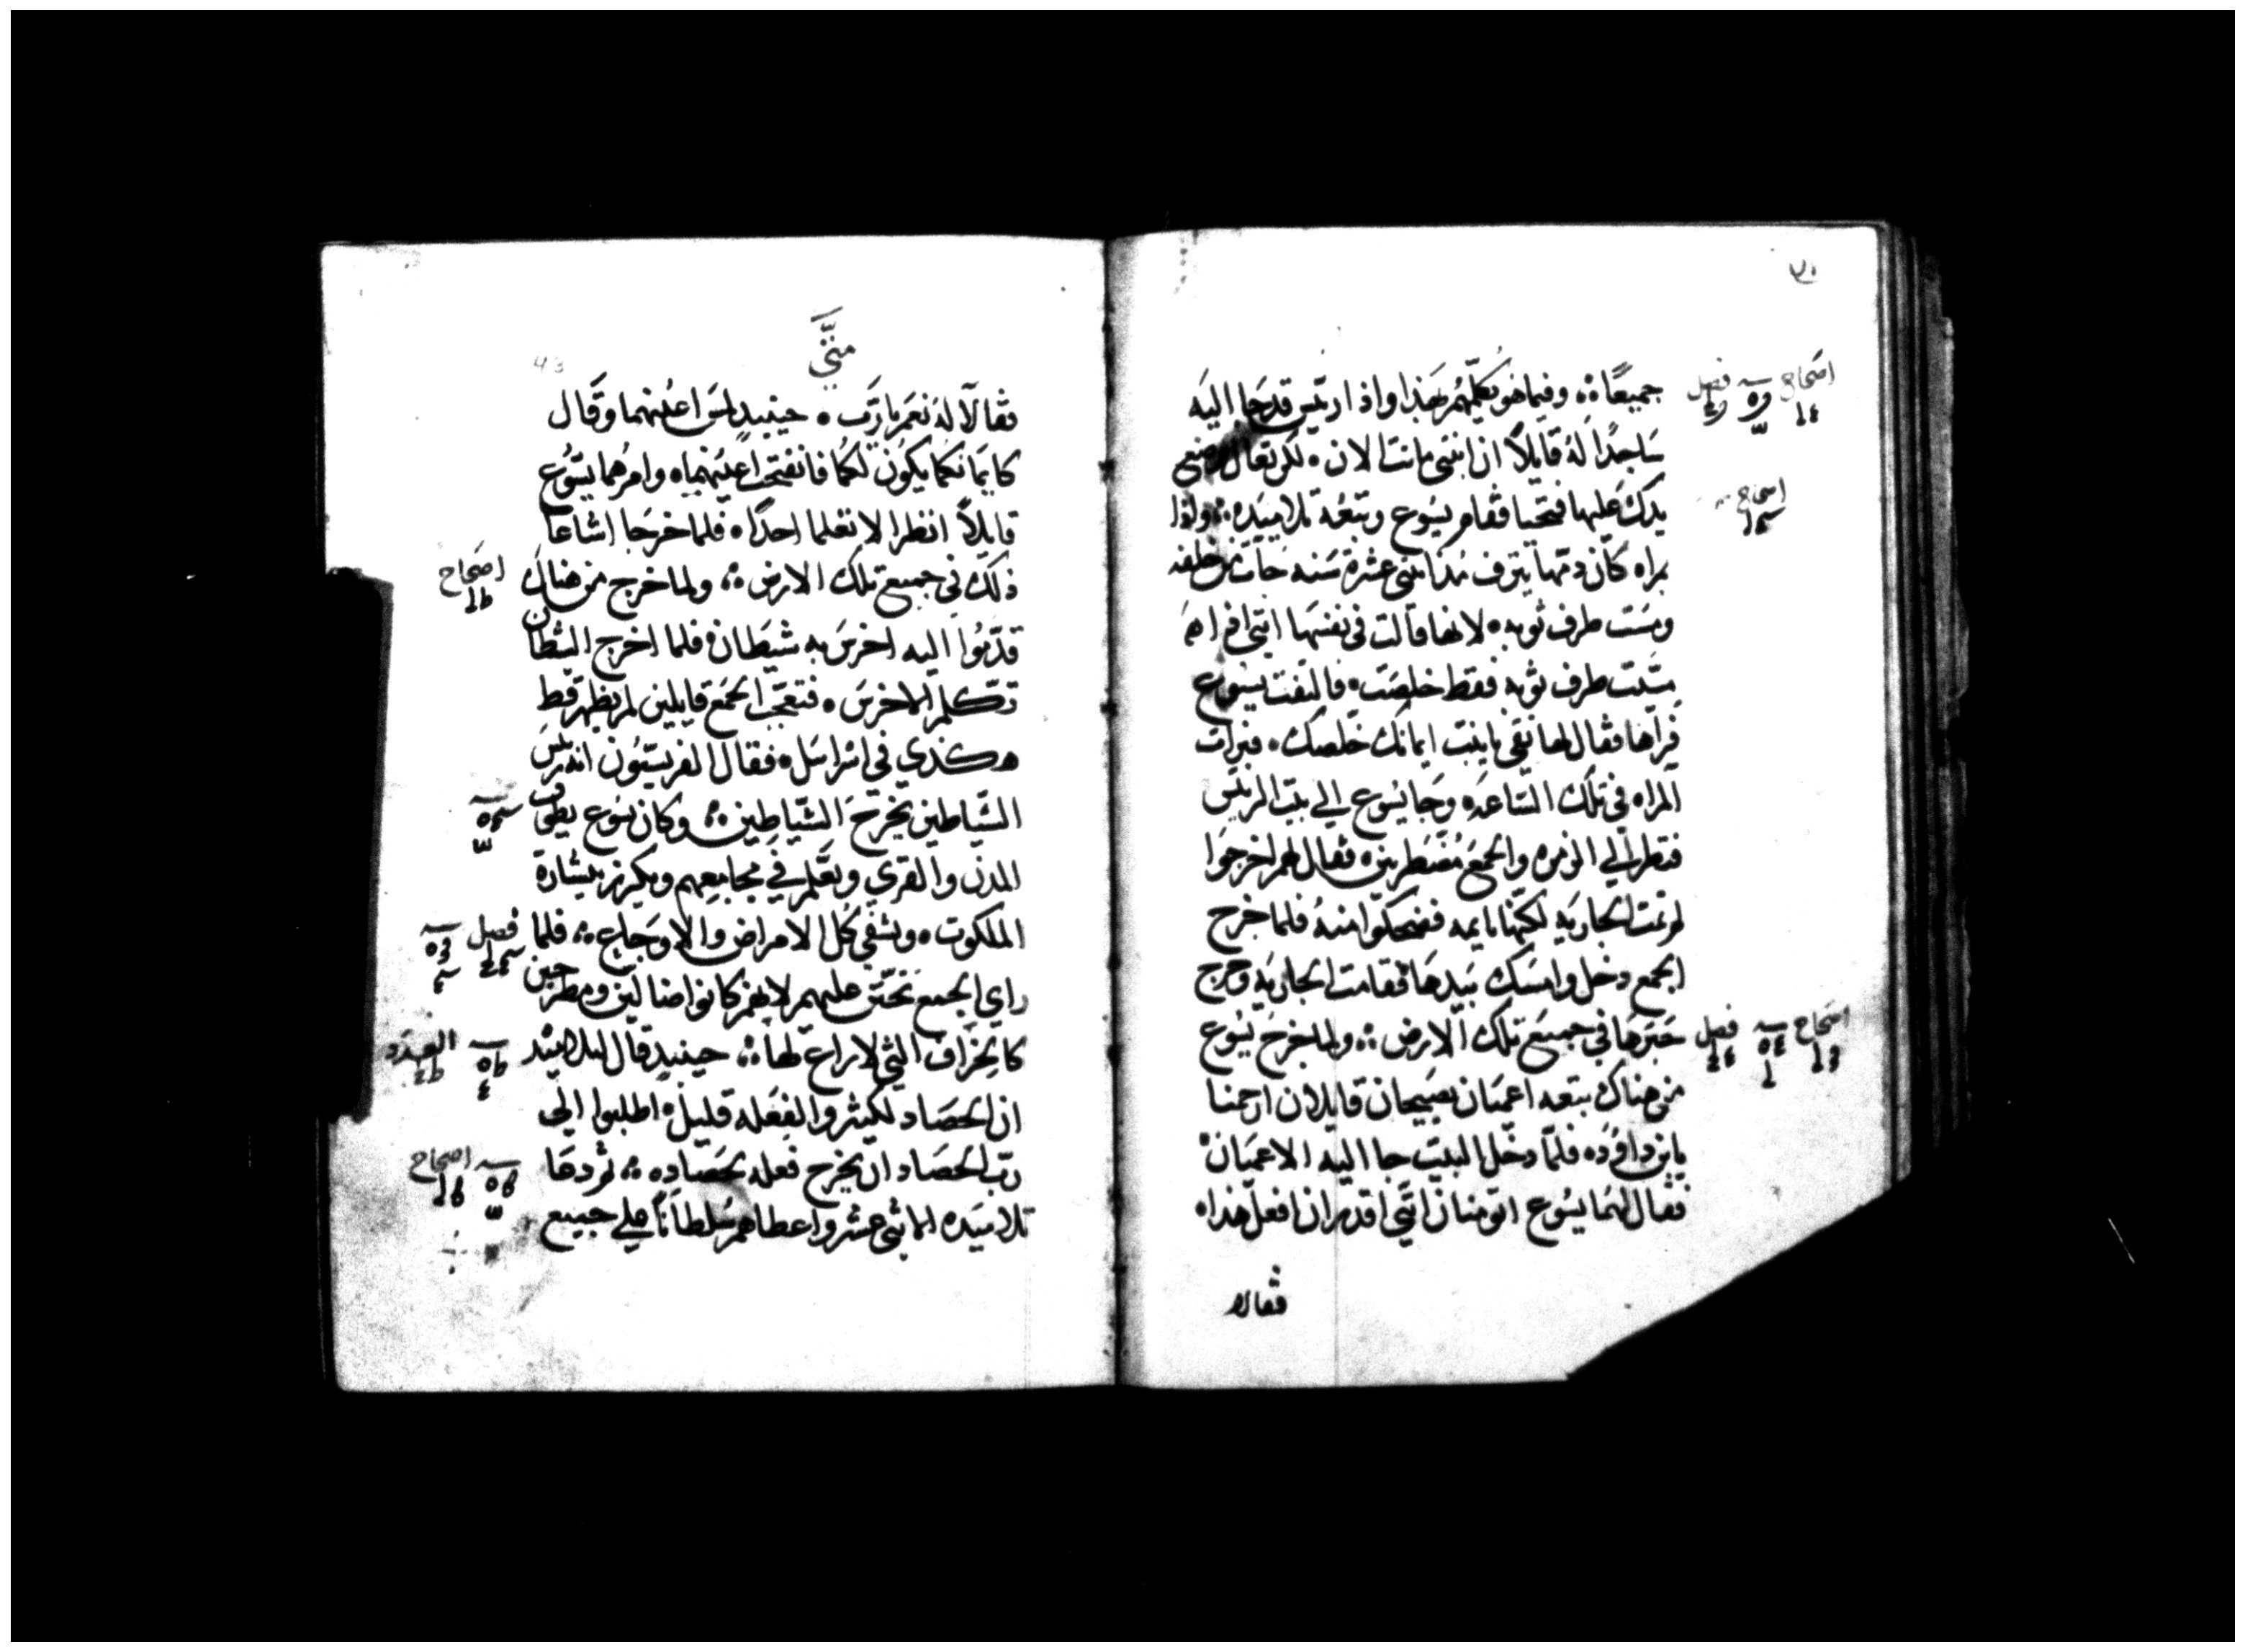 جميعًا ۞ وفيما هو يكلّمهم بهذا واذا ريّس قد جا اليه
ساجدًا له قايلاً ان ابنتي ماتت الان ۰ لكن تعال وضع
يدك عليها فتحيا فقام يسوع وتبعه تلاميده ۞ واذا
بمراه كان دمها ينزف مُند اثني عشرة سنه جات من خلفه
ومست طرف ثوبه ۰ لانها قالت في نفسها انني
مسّيت طرف ثوبه فقط خلصت ۰ فالتفت يسوع
فراها فقال لها ثقي يابنت ايمانك خلّصك ۰ فبرات
المراه في تلك الساعه ۰ وجا يسوع الي بيت الريّس
فنظر الي الزمره والجمع مُضطربين ۰ فقال لهم اخرجوا
لم تمت الجاريه لكنها نايمه فضحكوا منه فلما خرج
الجمع دخل وامسك بيدها فقامت الجاريه وخرج
خبرها في جميع تلك الارض ۞ ولما خرج يسوع
من هناك تبعه اعميان يصيحان قايلان ارحمنا
يابن داوُد ۰ فلمّا دخل البيت جا اليه الاعميان
فقال لهما يسوع اتومنان انّي اقدر ان افعل هدا ۰
فقالا
اصحاح
فصل
اصحاح
اصحاح
فصل
متّي
43
فقالا له نعم يا رب ۰ حينيدٍ لمس اعينهما وقال
كايمانكما يكون لكما فانفتحت اعينهما ۰ وامرهما يسُوع
قايلاً انظرا لا تعلما احدًا ۰ فلما خرجا اشاعا
ذلك في جميع تلك الارض ۞ ولما خرج من هناك
قدّموا اليه اخرس به شيطان ۰ فلما اخرج الشطان
تكلم الاخرس ۰ فتعجب الجمع قايلين لم يظهر قط
هكدي في اسراييل ۰ فقال الفريسيون انه بريس
الشياطين يخرج الشياطين ۞ وكان يسوع يطوف
المدن والقري ويعلم في مجامعهم ويكرز ببشارة
الملكوت ۰ ويشفي كل الامراض والاوجاع ۞ فلما
راي الجمع تحنّن عليهم لانهم كانوا ضالين ومطرحين
كالخراف التي لا راع لها ۞ حينيدٍ قال لتلاميد
ان الحصاد لكثير والفعله قليل ۰ اطلبوا الي
ربّ الحصاد ان يخرج فعله لحصاده ۞ ثم دعا
تلاميده الاثني عشر واعطاهم سُلطانًا علي جميع
اصحاح
فصل
العدد
اصحاح